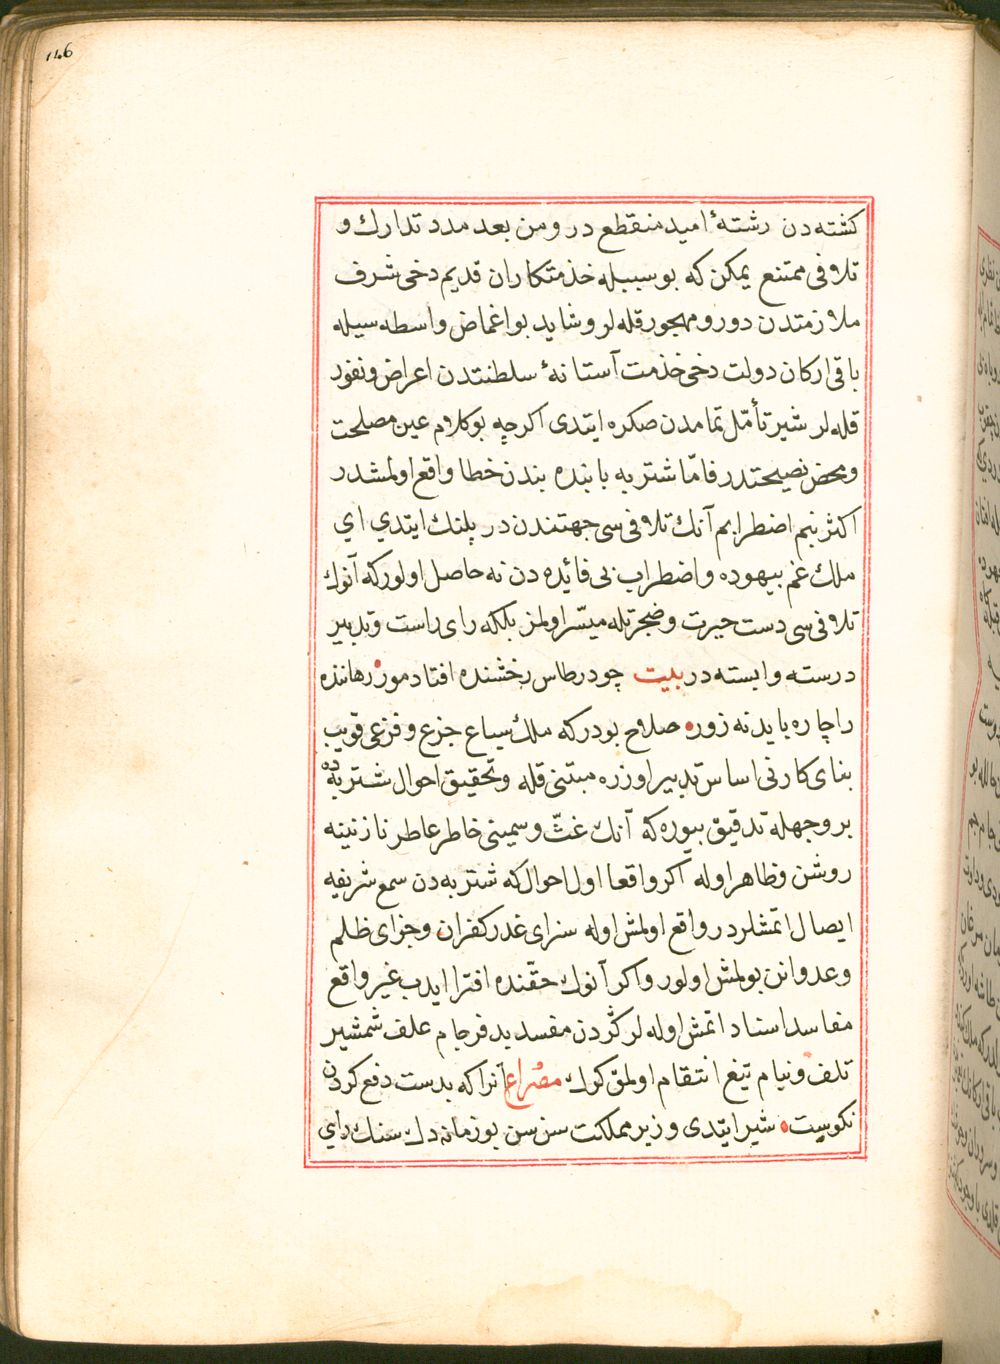 146
کشته‌دن رشتهٔ امید منقطع در ومن بعد مدد تدارك و
تلافی ممتنع یمکن که بو سببله خذمتکاران قدیم دخی شرف
ملازمتدن دور ومهجور قله‌لر وشاید بو اغماض واسطه سیله
باقی ارکان دولت دخی خذمت آستانهٔ سلطنتدن اعراض ونفور
قله‌لر شیر تأمّل تمامدن صکره ایتدی اکرچه بو کلام عین مصلحت
ومحض نصیحتدر فامّا شتربه بابنده بندن خطا واقع اولمشدر
اکثر بنم اضطرابم آنك تلافی سی جهتندن در پلنك ایتدی ای
ملك غم بیهوده واضطراب بی فائیده دن نه حاصل اولور که آنوك
تلافی سی دست حیرت وضجرتله میسّر اولمز بلکه رای راست وتدبیر
درسته وابسته در بیت چو در طاس رخشنده افتاد مور رهاننده
را چاره باید نه زور صلاح بودر که ملك سباع جزع وفزعی قویب
بنای کارنی اساس تدبیر اوزره مبتنی قله وتحقیق احوال شتربه‌ده
بر وجهله تدقیق بیوره که آنك غثّ وسمینی خاطر عاطر نازنینه
روشن وظاهر اوله اکر واقعا اول احوال که شتربه دن سمع شریفه
ایصال اتمشلردر واقع اولمش اوله سزای غدر کفران وجزای ظلم
وعدوانن بولمش اولور واکر آنوك حقّنده افترا ایدب غیر واقع
مفاسد اسناد اتمش اوله لر کژدن مفسد بد فرجام علف شمشیر
تلف ونیام تیغ انتقام اولمق کرك مصراع آنرا که بدست دفع کردن
نکوست شیر ایتدی وزیر مملکت سن سن بو زمانه دك سنك رای